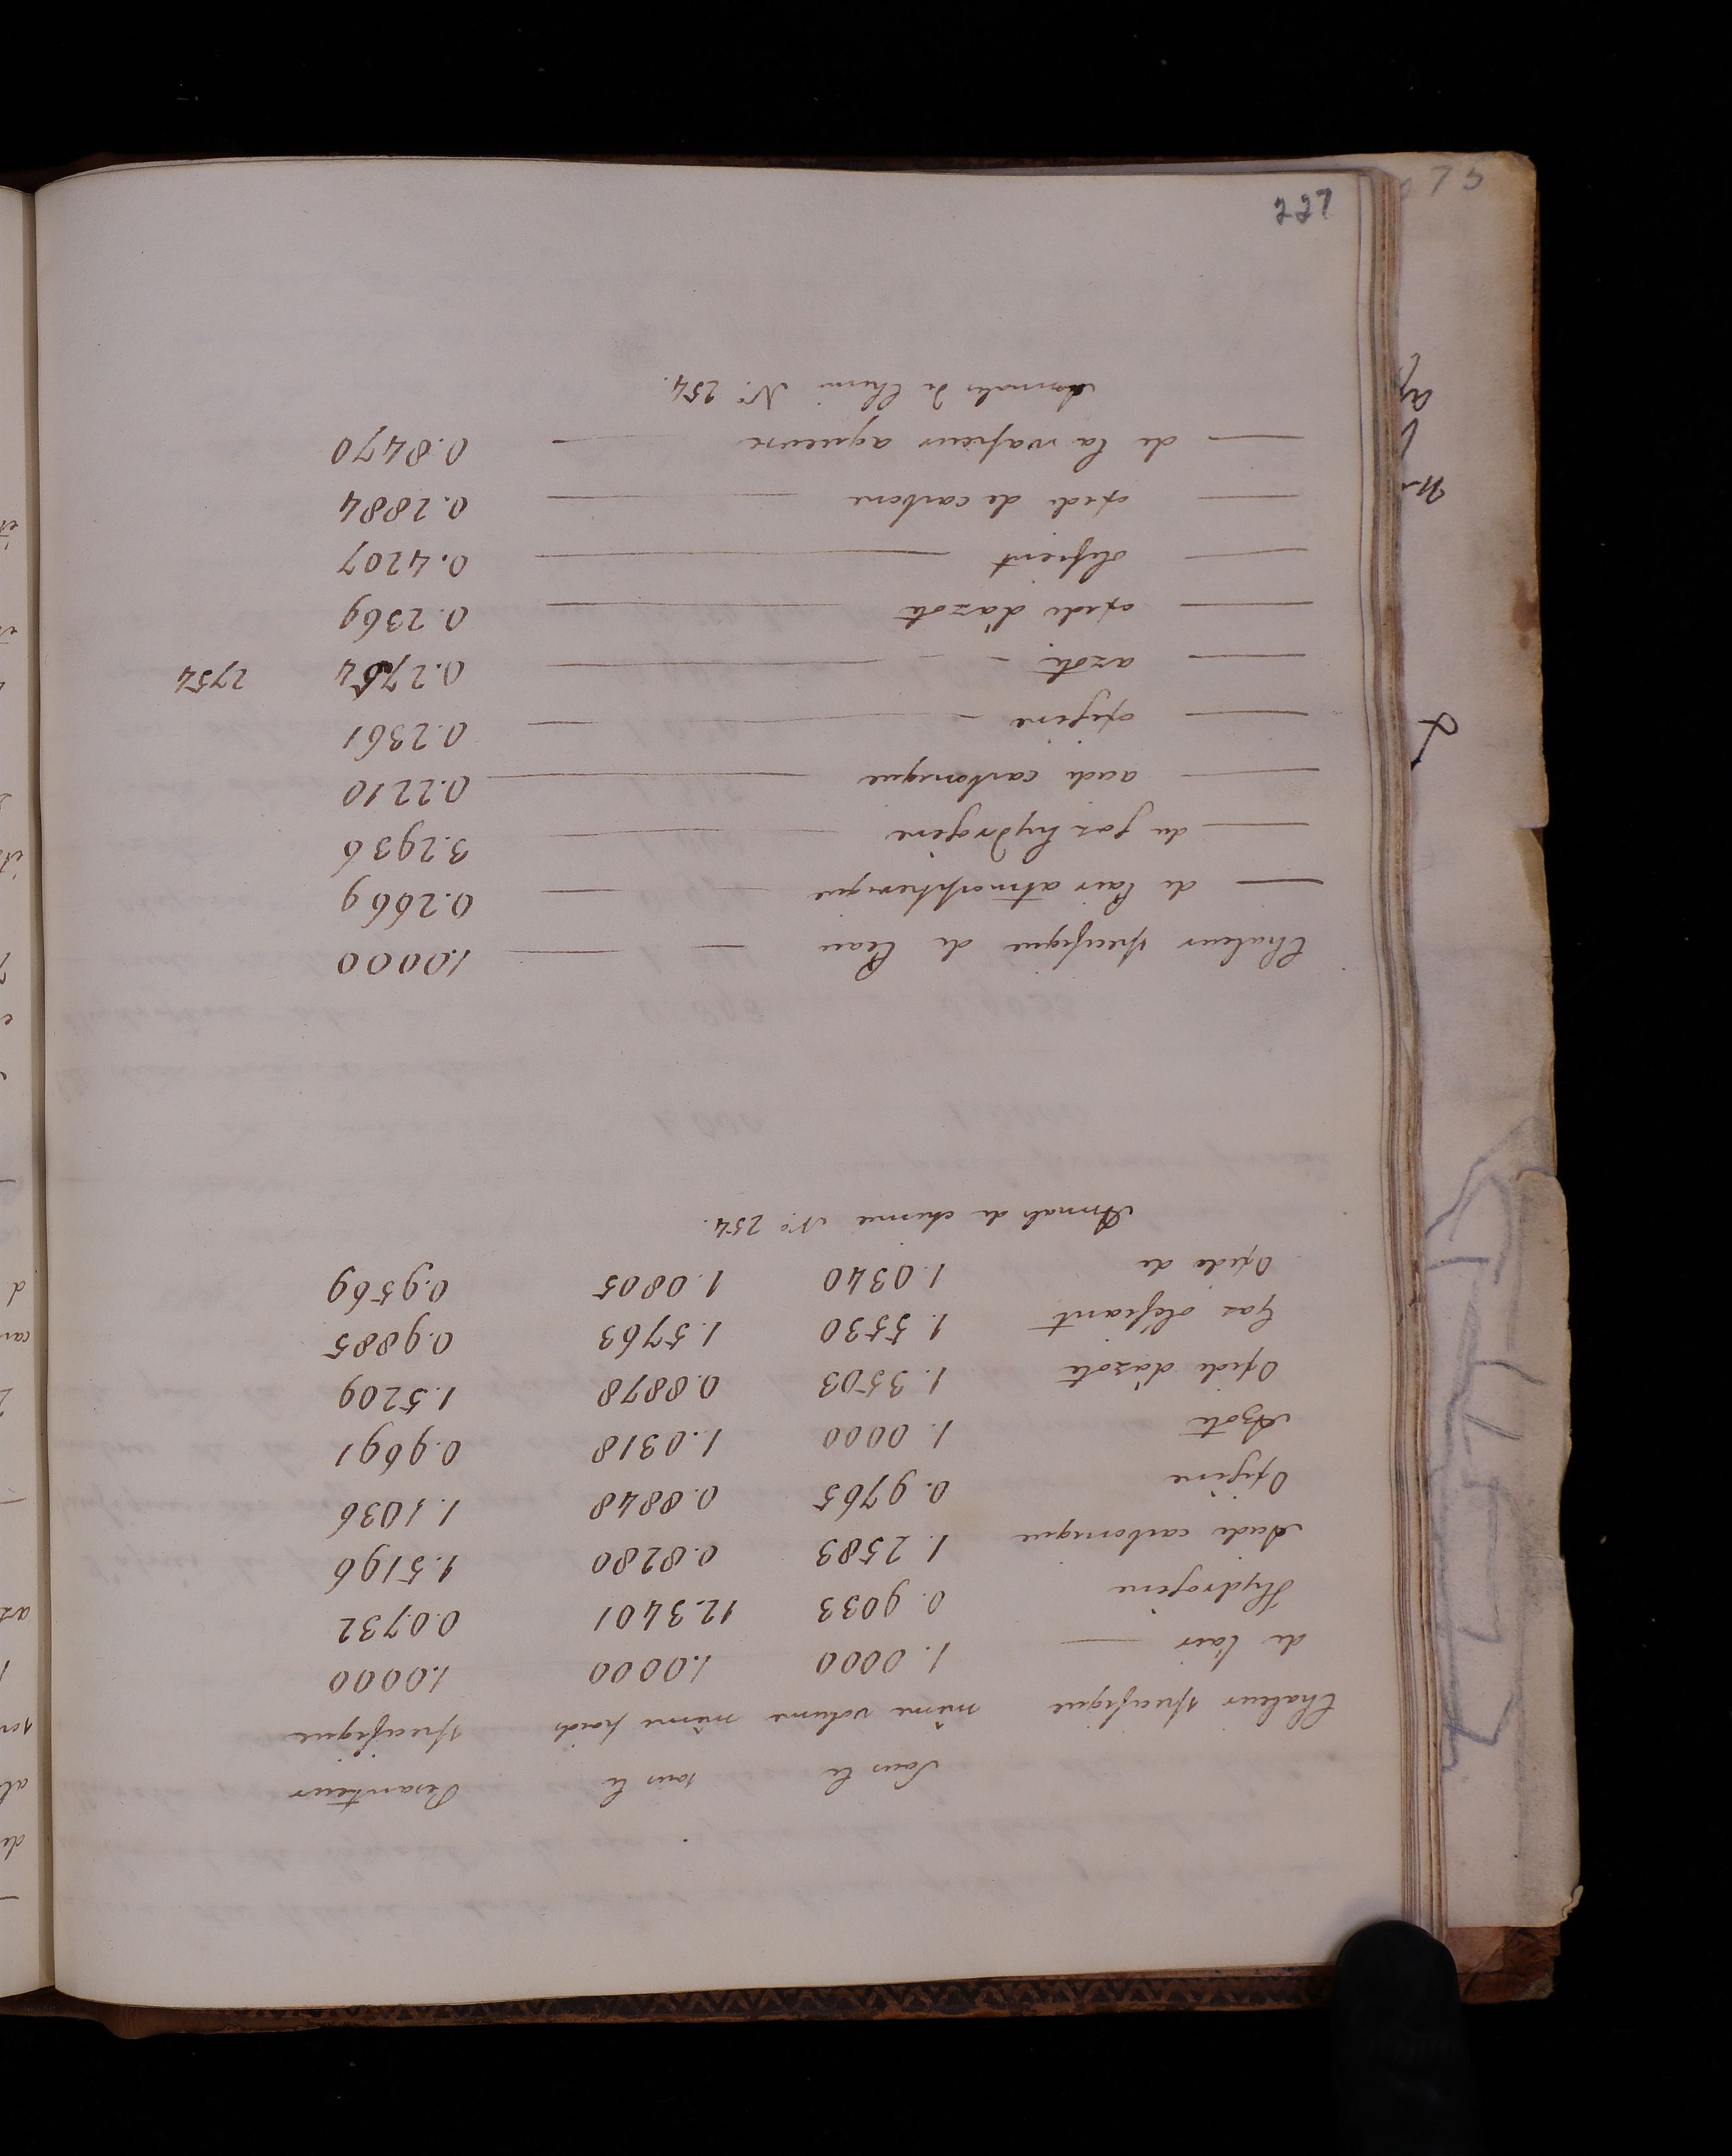 Sous le sous le Pesanteur
Chaleur specifique même volume même poids specifique
de l'air — 1.0000 1.0000 1.0000
Hydrogène 0.9033 12.3401 0.0732
Acide carbonique 1.2583 0.8280 1.5196
Oxigène 0.9765 0.8848 1.1036
Azote 1.0000 1.0318 0.9691
Oxide d'azote 1.3503 0.8878 1.5209
Gaz oléfiant 1.5530 1.5763 0.9885
Oxide de 1.0340 1.0805 0.9569
Annals de chimie No. 254.
Chaleur specifique de l'eau — — 1.0000
— de l'air atmospherique — — 0.2669
— du gaz hydrogène — — 3.2936
— acide carbonique — 0.2210
— oxigène — — 0.2361
— azote — — 0.2754 2754
— oxide d'azote — 0.2369
— olefient — 0.4207
— oxide de carbone — — 0.2884
— de la vapeur aqueuse — 0.8470
Annales de Chimi No. 254.
227
73